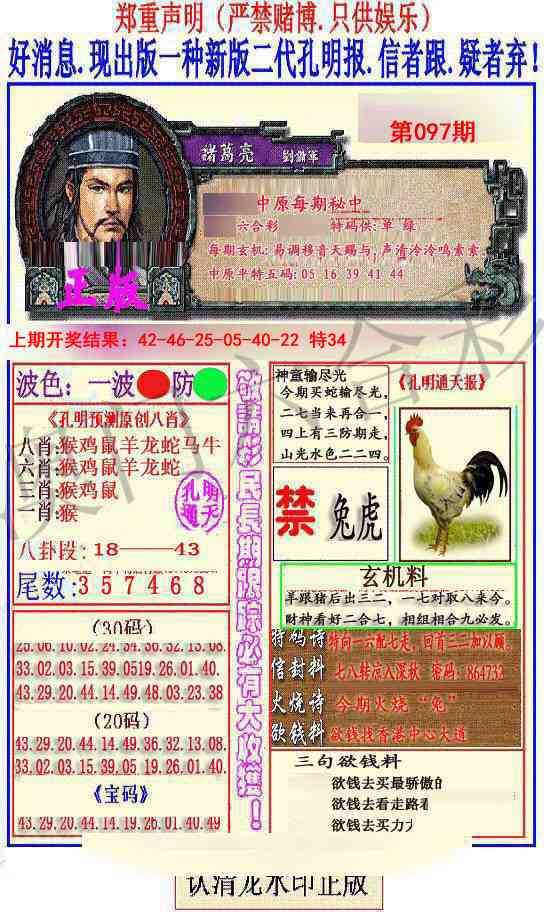 郑重声明（严禁赌博.只供娱乐）
好消息.现出版一种新版二代孔明报.信者跟.疑者弃！
第097期
諸葛亮 劉備軍
中原每期秘中
六合彩 特码供：单 绿
每期玄机：易调移音天赐与，声清泠泠鸣索索.
中原平特五码：05 16 39 41 44
正版
上期开奖结果：42-46-25-05-40-22 特34
波色：一波 防
《孔明预测原创八肖》
八肖:猴鸡鼠羊龙蛇马牛
六肖:猴鸡鼠羊龙蛇
三肖:猴鸡鼠
一肖:猴
孔明
通天
八卦段：18——43
尾数:357468
(30码)
25.06.10.02.24.34.36.32.13.08.
33.02.03.15.39.0519.26.01.40.
43.29.20.44.14.49.48.03.23.38
(20码)
43.29.20.44.14.49.36.32.13.08
33.02.03.15.39.05.19.26.01.40
《宝码》
43.29.20.44.14.19.26.01.40.49
敬請彩民長期跟踪必有大收獲！
神童输尽光
今期买蛇输尽光，
二七当来再合一，
四上有三防期走，
山光水色二二四。
《孔明通天报》
禁 兔虎
玄机料
羊跟猪后出三二，一七对取八来今。
财神看好二合七，相组相合九必发。
特码诗 特向一六配七走，回首三二加以顾。
信封料 七八转凉入深秋 密码：864733
火烧诗 今期火烧“兔”
欲钱料 欲钱找香港中心大道
三句欲钱料
欲钱去买最骄傲的
欲钱去看走路看
欲钱去买力
认清龙水印正版